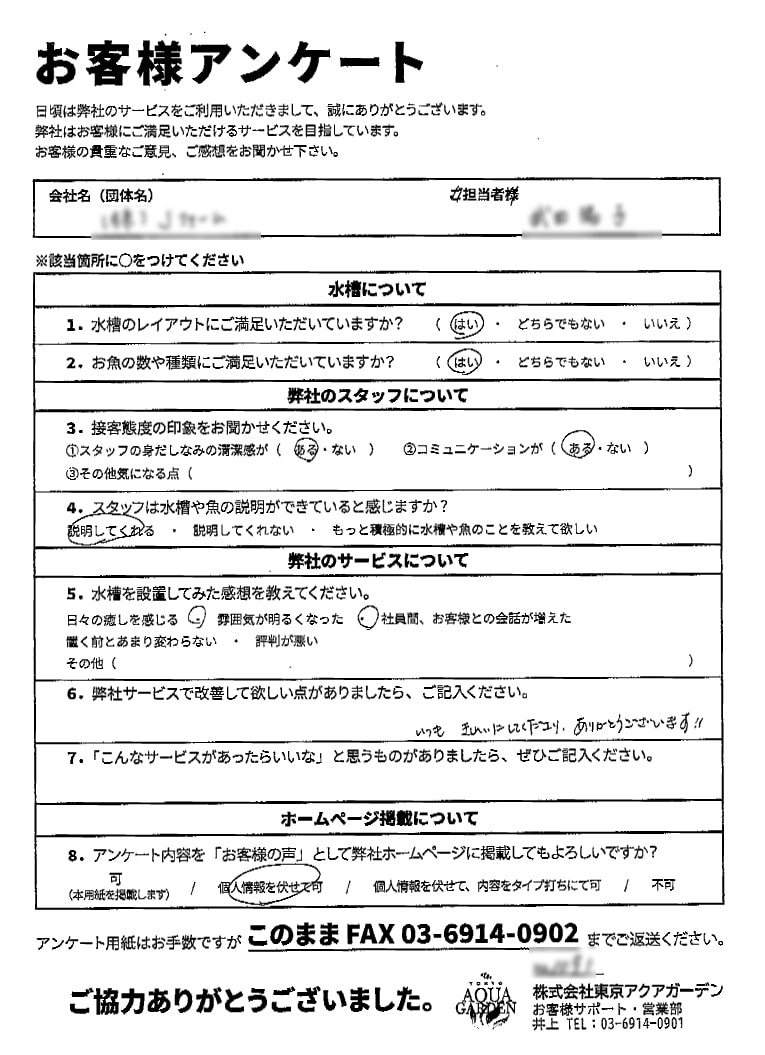 お客様アンケート
日頃は弊社のサービスをご利用いただきまして、誠にありがとうございます。
弊社はお客様にご満足いただけるサービスを目指しています。
お客様の貴重なご意見、ご感想をお聞かせ下さい。
会社名（団体名） ご担当者様
※該当箇所に〇をつけてください
水槽について
1. 水槽のレイアウトにご満足いただいていますか？ （ はい ・ どちらでもない ・ いいえ ）
2. お魚の数や種類にご満足いただいていますか？ （ はい ・ どちらでもない ・ いいえ ）
弊社のスタッフについて
3. 接客態度の印象をお聞かせください。
①スタッフの身だしなみの清潔感が（ ある・ない ） ②コミュニケーションが（ ある・ない ）
③その他気になる点（ ）
4. スタッフは水槽や魚の説明ができていると感じますか？
説明してくれる ・ 説明してくれない ・ もっと積極的に水槽や魚のことを教えて欲しい
弊社のサービスについて
5. 水槽を設置してみた感想を教えてください。
日々の癒しを感じる ・ 雰囲気が明るくなった ・ 社員間、お客様との会話が増えた
置く前とあまり変わらない ・ 評判が悪い
その他（ ）
6. 弊社サービスで改善して欲しい点がありましたら、ご記入ください。
いつも きれいにしてくださり、ありがとうございます!!
7. 「こんなサービスがあったらいいな」と思うものがありましたら、ぜひご記入ください。
ホームページ掲載について
8. アンケート内容を「お客様の声」として弊社ホームページに掲載してもよろしいですか？
可 / 個人情報を伏せて可 / 個人情報を伏せて、内容をタイプ打ちにて可 / 不可
（本用紙を掲載します）
アンケート用紙はお手数ですが このまま FAX 03-6914-0902 までご返送ください。
ご協力ありがとうございました。
TOKYO
AQUA
GARDEN
株式会社東京アクアガーデン
お客様サポート・営業部
井上 TEL：03-6914-0901